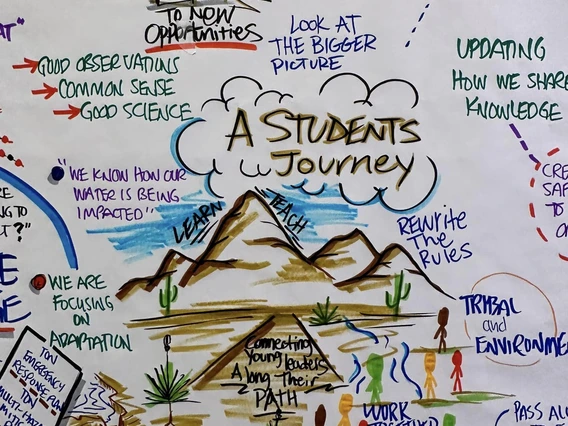 TO NOW
Opportunities
LOOK AT
THE BIGGER
PICTURE
UPDATING
HOW WE SHARE
KNOWLEDGE
GOOD OBSERVATIONS
COMMON SENSE
GOOD SCIENCE
A STUDENTS
Journey
"WE KNOW HOW OUR
WATER IS BEING
IMPACTED"
LEARN
TEACH
REWRITE
THE
RULES
WE ARE
FOCUSING
ON
ADAPTATION
TRIBAL
and
ENVIRONME
Connecting
Young leaders
Along Their
PATH
TON
EMERGENCY
RESPONSE PLAN
TON
MULTI-HAZ
WORK
TOGETHER
PASS AL